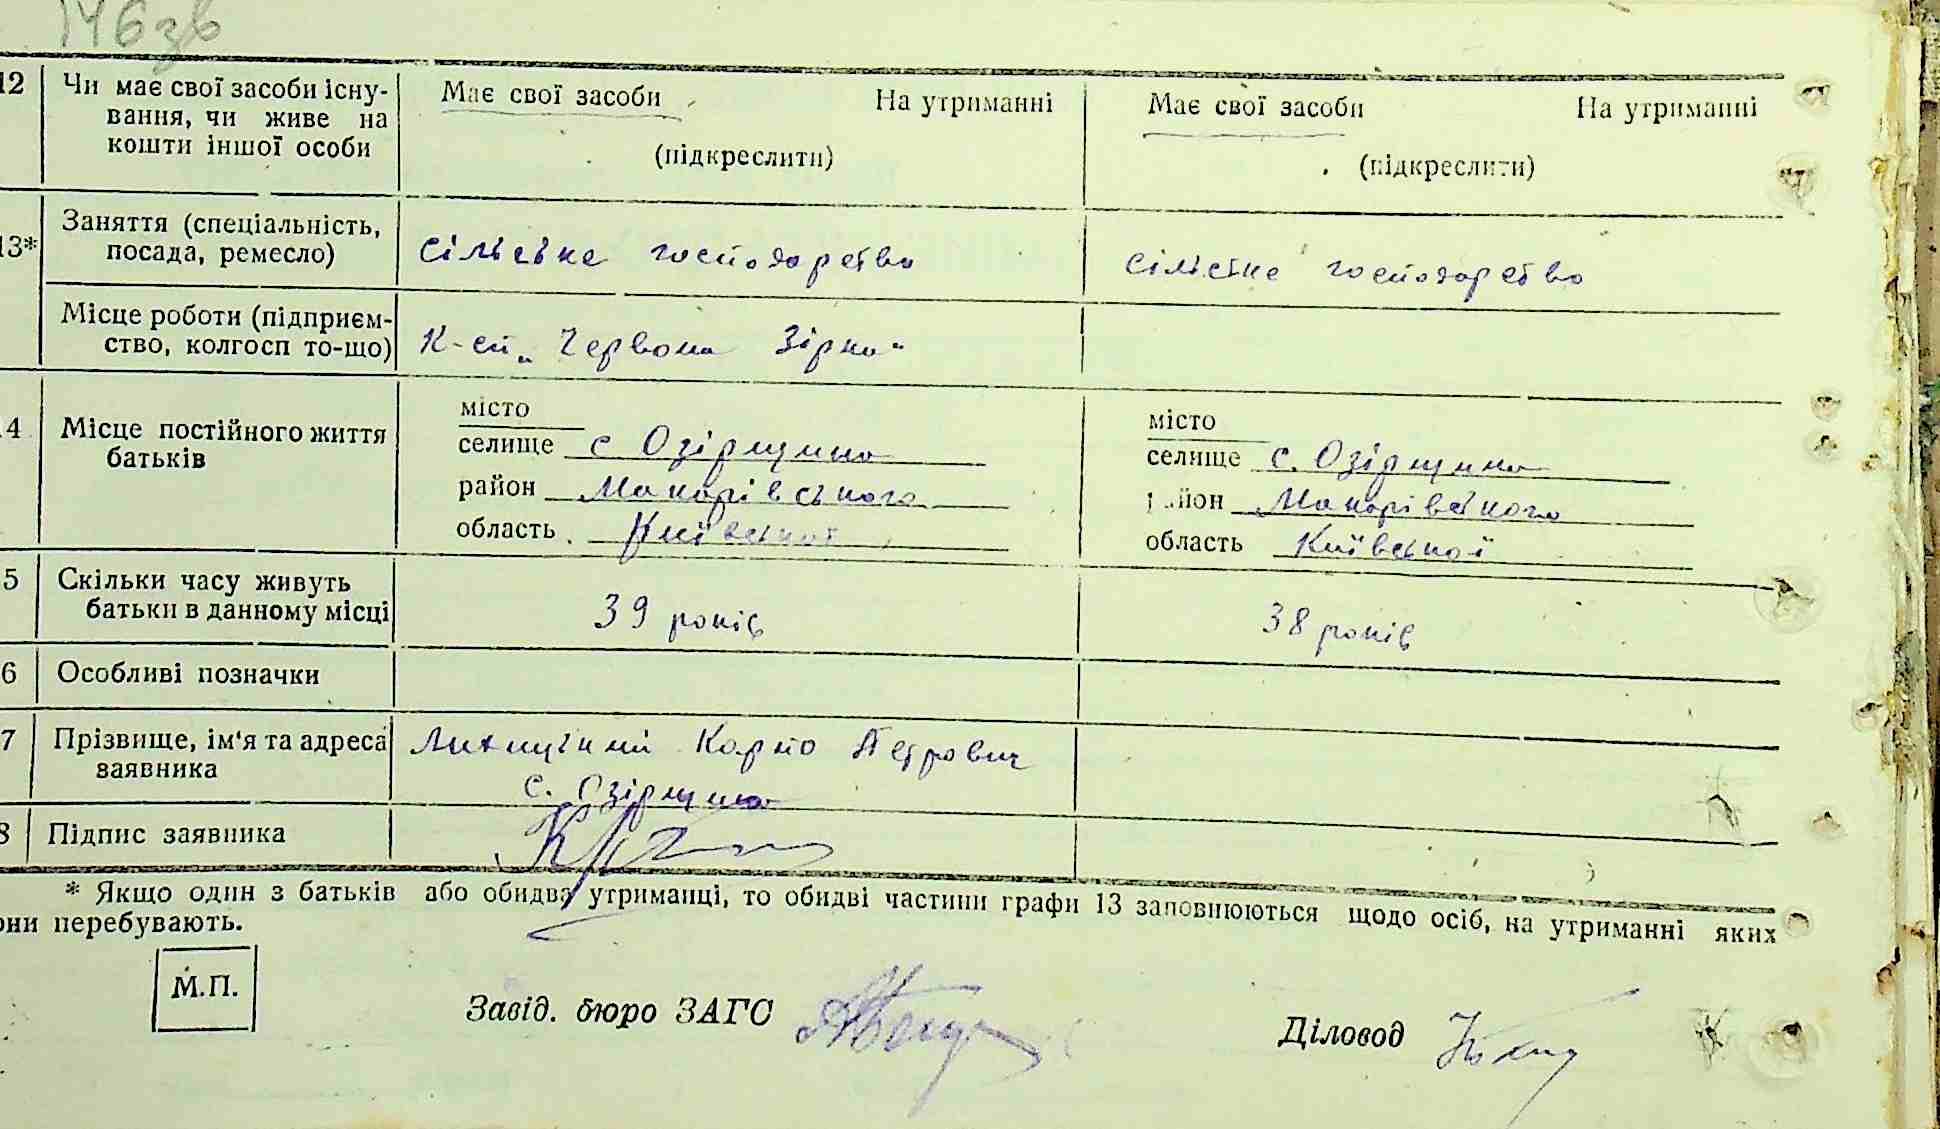 146 зв
12 Чи має свої засоби існу-
вання, чи живе на
кошти іншої особи
Має свої засоби На утриманні
(підкреслити)
Має свої засоби На утриманні
(підкреслити)
13* Заняття (спеціальність,
посада, ремесло)
сільське господарство
сільське господарство
Місце роботи (підприєм-
ство, колгосп то-що)
К-сп „Червона Зірка"
4 Місце постійного життя
батьків
місто
селище с Озірщина
район Макарівського
область Київської
місто
селище с. Озірщина
район Макарівського
область Київської
5 Скільки часу живуть
батьки в данному місці
39 років
38 років
6 Особливі позначки
7 Прізвище, ім'я та адреса
заявника
Карпо Петрович
с. Озірщина
8 Підпис заявника
* Якщо один з батьків або обидва утриманці, то обидві частини графи 13 заповнюються щодо осіб, на утриманні яких
они перебувають.
М.П.
Завід. бюро ЗАГС
Діловод